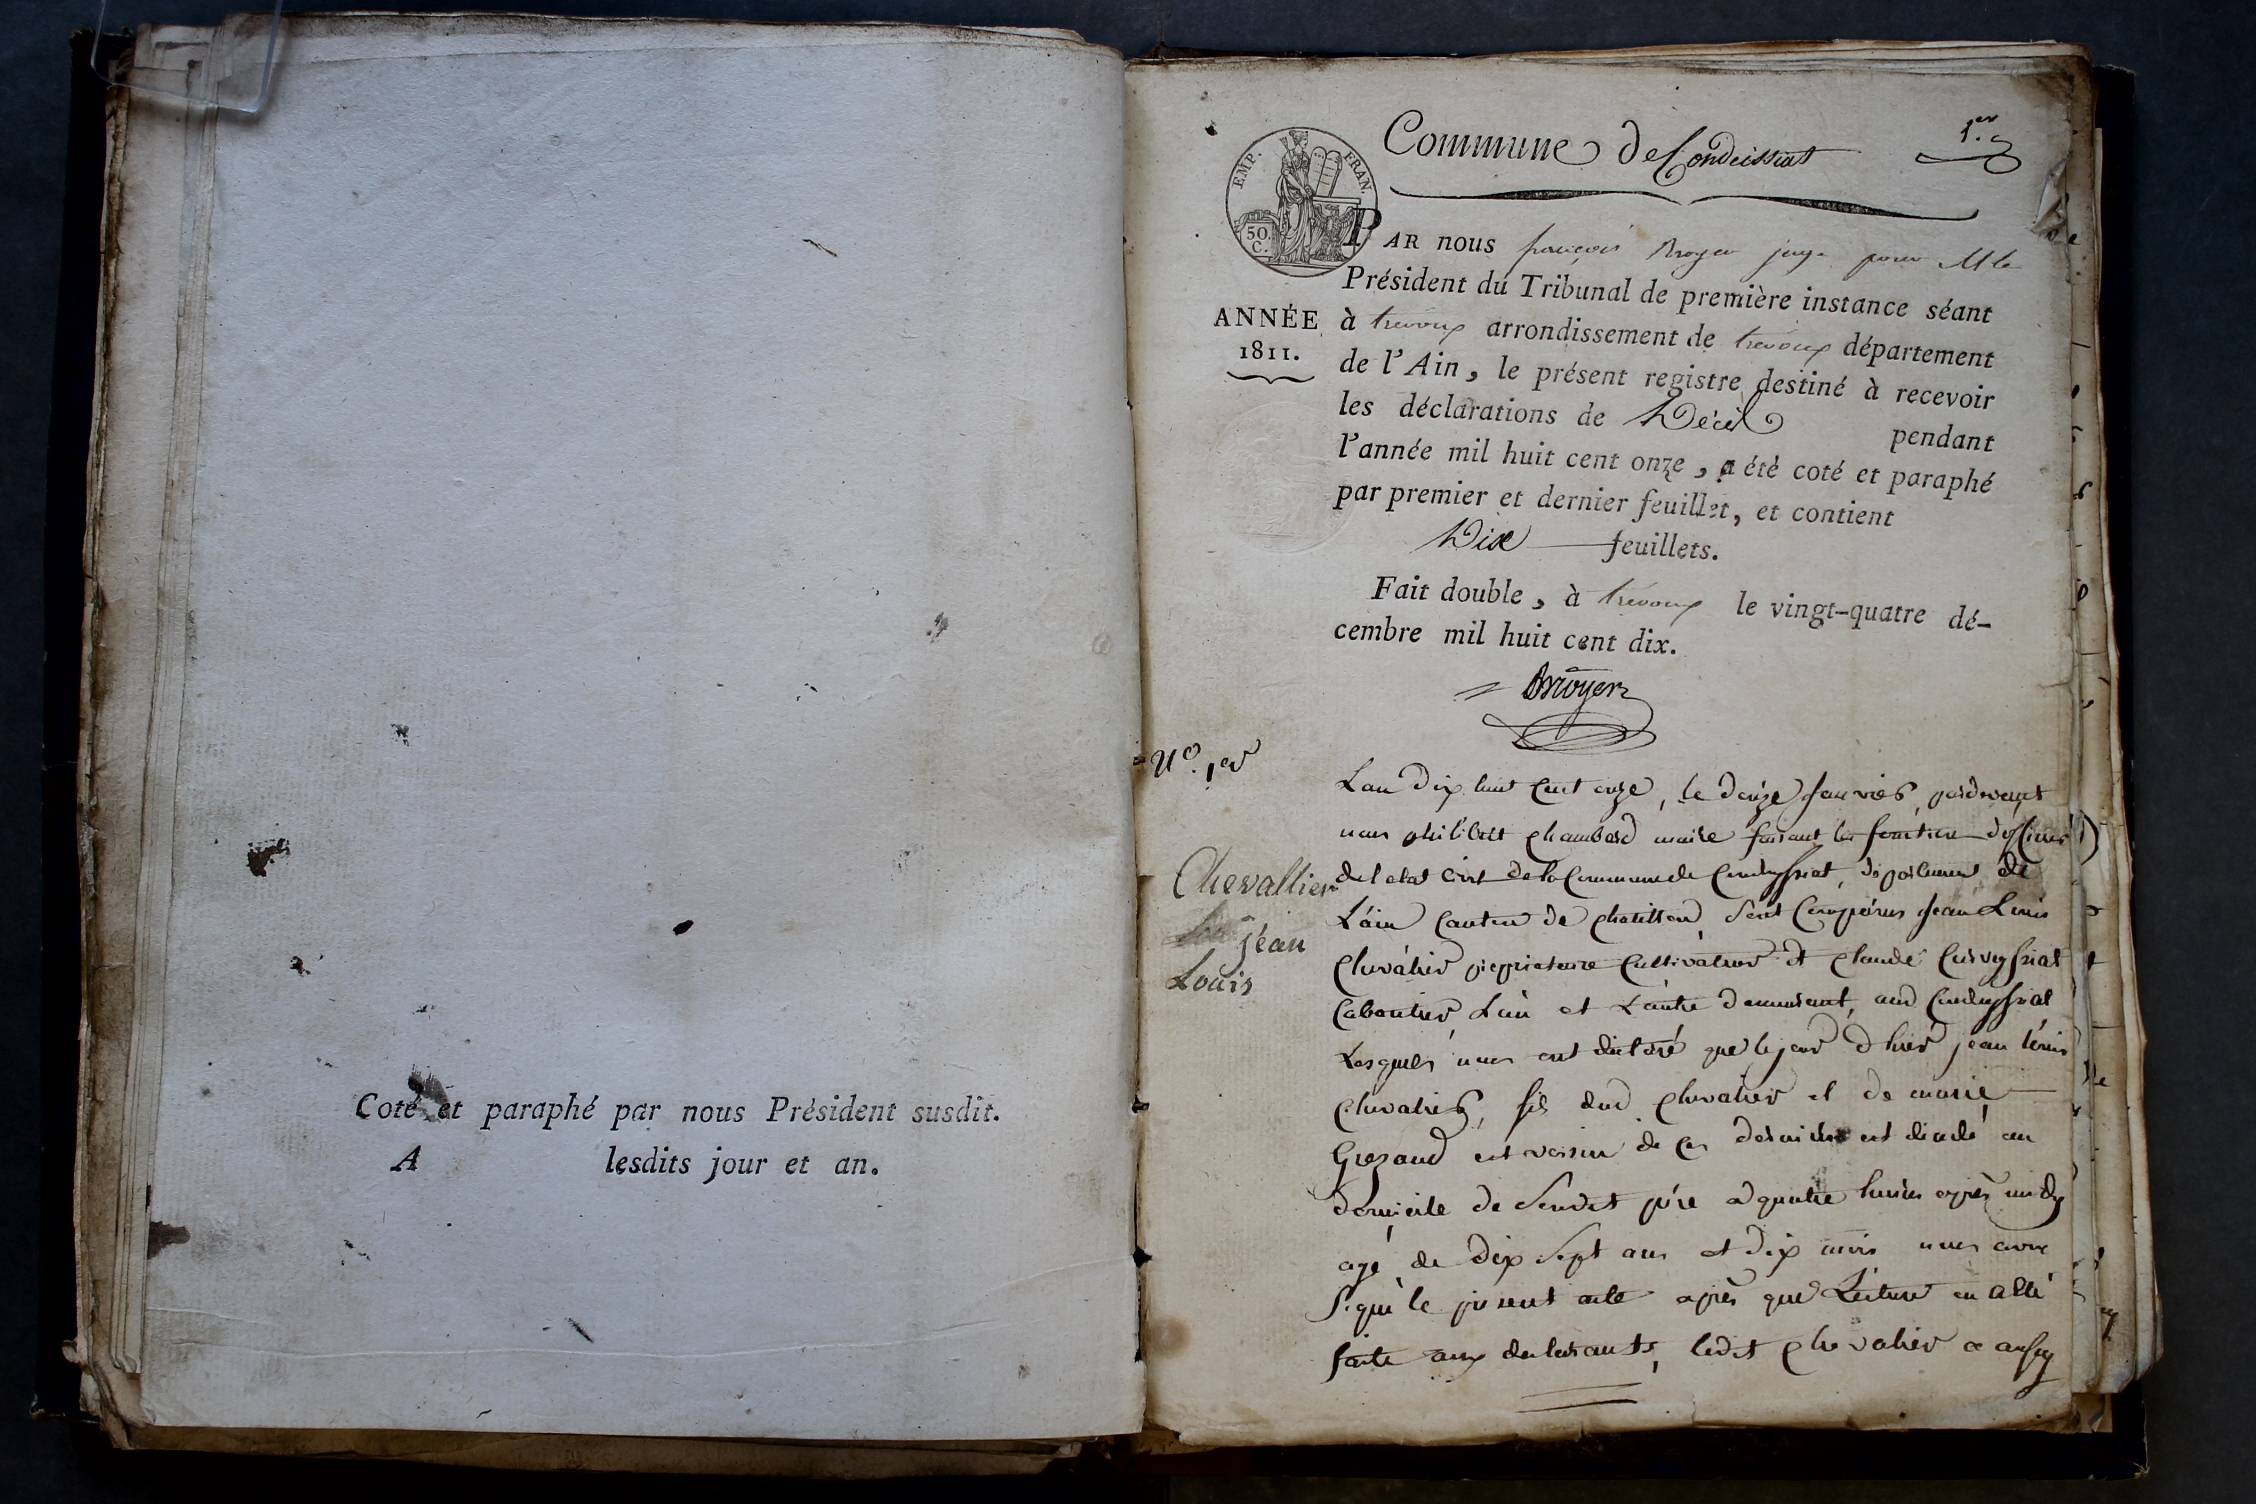 Coté et paraphé par nous Président susdit.
A lesdits jour et an.
Commune de Condeissiat
1.er
EMP. FRAN.
50. C.
ANNÉE
1811.
PAR nous françois Broyer juge pour M le
Président du Tribunal de première instance séant
à trevoux arrondissement de trevoux département
de l'Ain, le présent registre destiné à recevoir
les déclarations de Décès pendant
l'année mil huit cent onze, a été coté et paraphé
par premier et dernier feuillet, et contient
Dix feuillets.
Fait double, à trevoux le vingt-quatre dé-
cembre mil huit cent dix.
Broyer
N°. 1er
Chevallier
jean
Louis
Lan dix huit cent onze, le douze janvier, pardevant
nous philibert chambard maire faisant les fonction
de letat civil de la Commune de Condeyssiat, departement de
Lain canton de chatillon, sont Comparus jean Louis
chevalier proprietaire Cultivateur et claude
Lun et Lautre demeurant aud Condeyssiat
Lesquels nous ont déclaré que le jour dhier jean louis
chevalier, fils dud chevalier et de marie
de ces derniers est décédé au
domicile de sondit père a quatre heures après midy
agé de dix sept ans et dix mois nous avons
signé le present acte après que Lecture en a été
faite aux declarants, ledit chevalier a